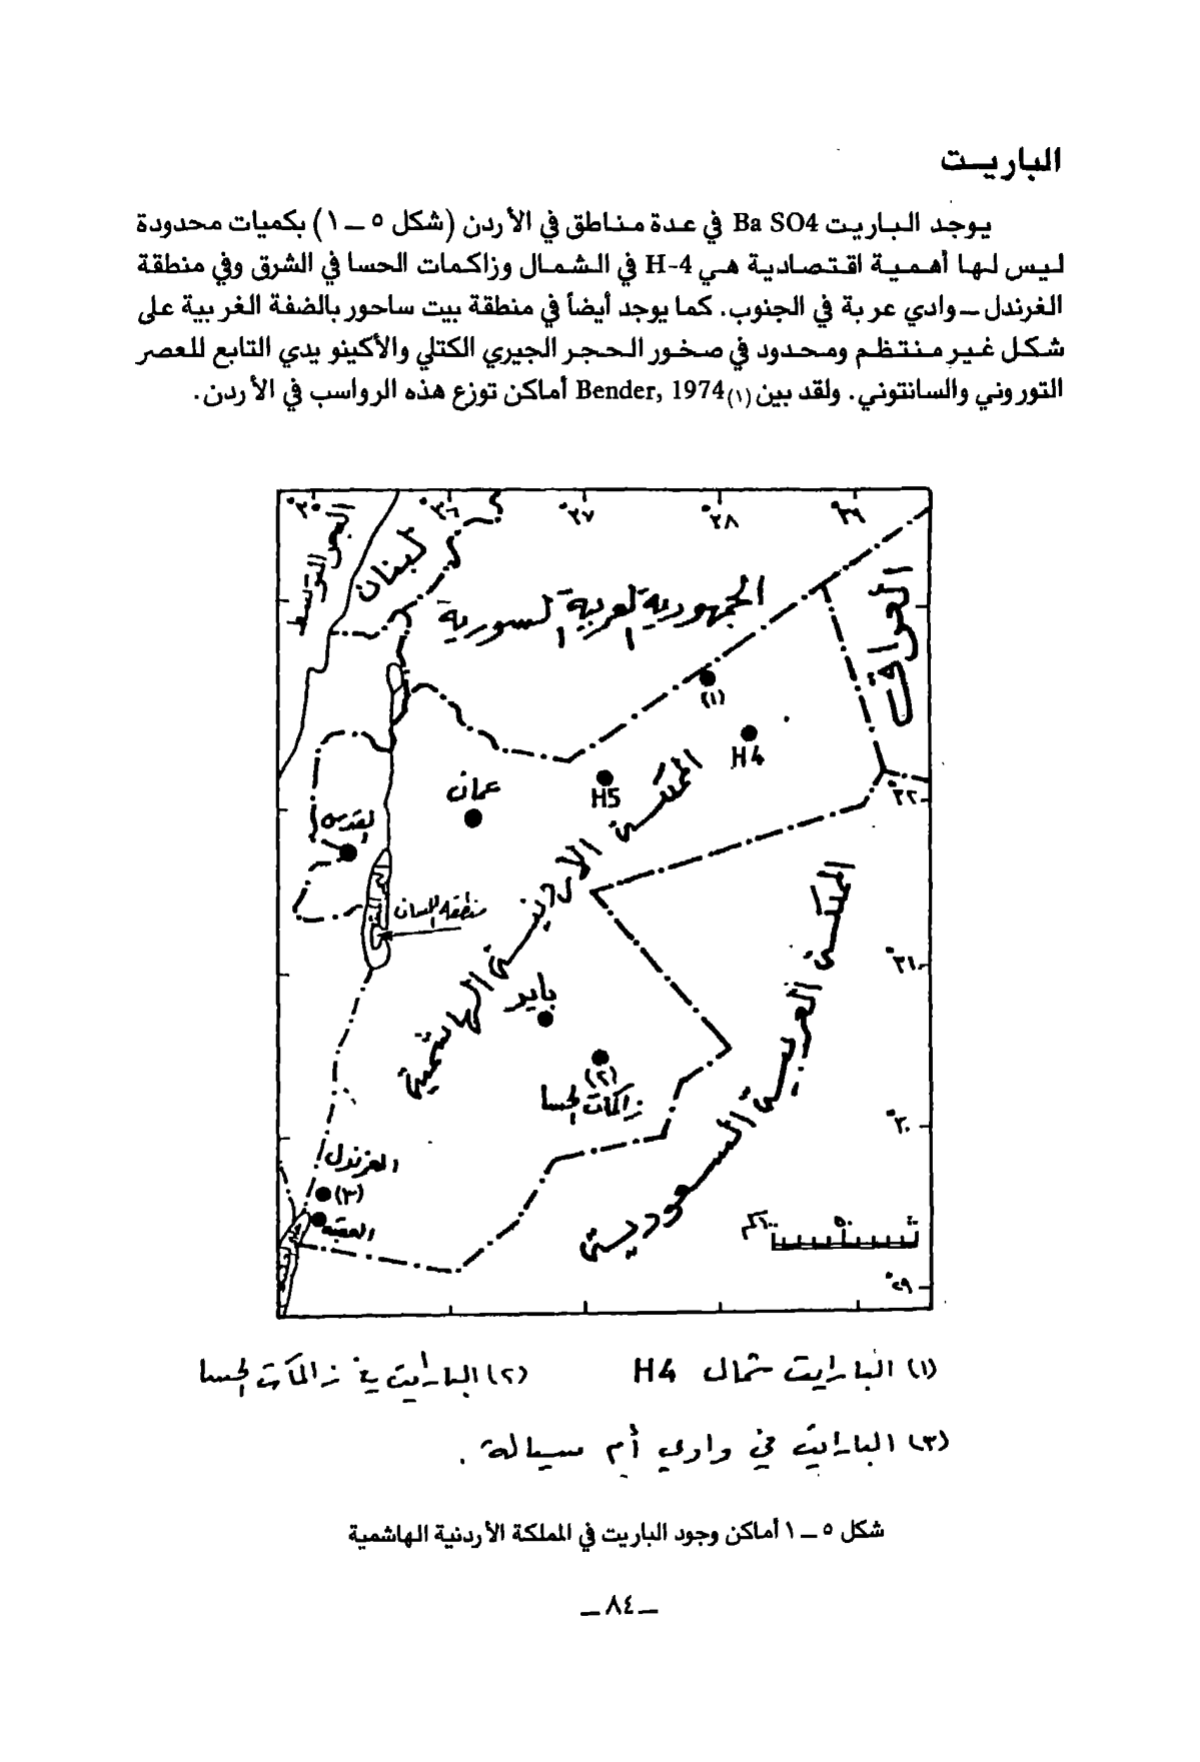 الباريت
يوجد الباريت Ba SO4 في عدة مناطق في الأردن (شكل ٥ – ١) بكميات محدودة
ليس لها أهمية اقتصادية هي H-4 في الشمال وزاكمات الحسا في الشرق وفي منطقة
الغرندل – وادي عربة في الجنوب. كما يوجد أيضاً في منطقة بيت ساحور بالضفة الغربية على
شكل غير منتظم ومحدود في صخور الحجر الجيري الكتلي والأكينويدي التابع للعصر
التوروني والسانتوني. ولقد بين Bender, 1974(١) أماكن توزع هذه الرواسب في الأردن.
٣٦° ٣٧° ٣٨° ٣٩°
البحر المتوسط
لبنان
الجمهورية العربية السورية
العراق
(١)
H4
H5
عمان
القدس
٣٢°
المملكة الأردنية الهاشمية
منطقة اللسان
٣١°
باير
(٢)
زاكمات الحسا
المملكة العربية السعودية
٣٠°
الغرندل
(٣)
العقبة
١٠٠كم ٥٠ ٠
٢٩°
(١) البارايت شمال H4
(٢) البارايت في زاكمات الحسا
(٣) البارايت في وادي أم سيالة .
شكل ٥ – ١ أماكن وجود الباريت في المملكة الأردنية الهاشمية
– ٨٤ –